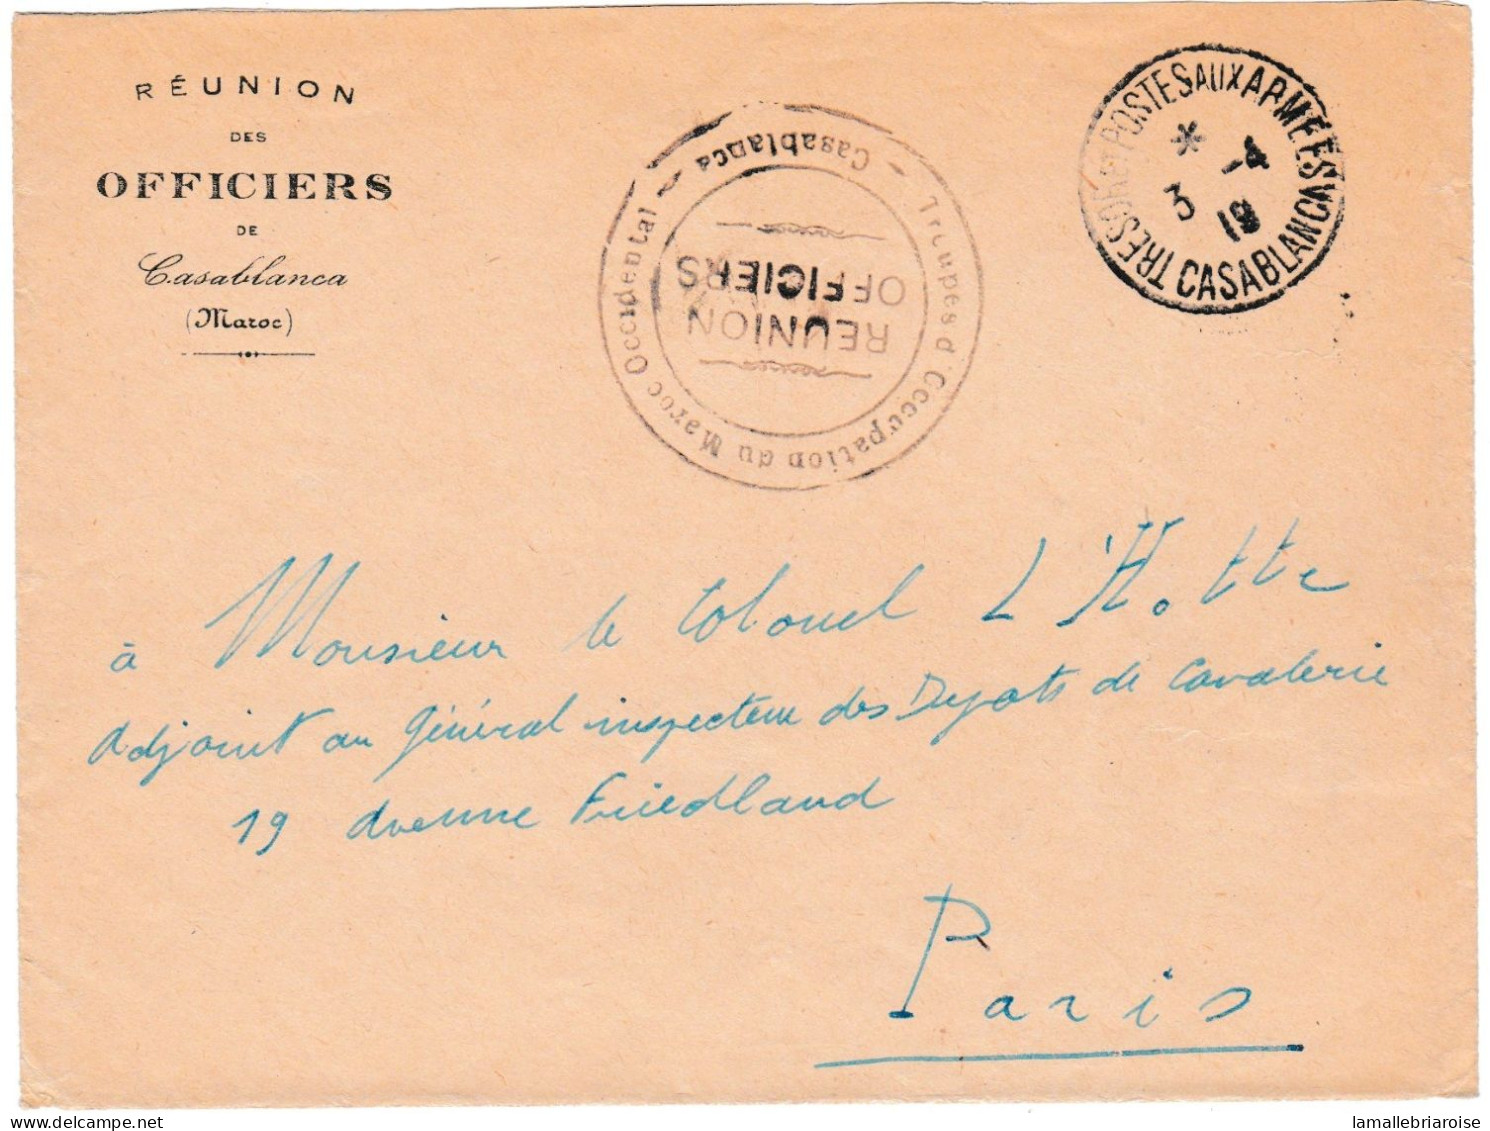 RÉUNION
DES
OFFICIERS
DE
Casablanca
(Maroc)
Troupes d'Occupation du Maroc Occidental
— Casablanca —
REUNION
OFFICIERS
TRESOR ET POSTES AUX ARMEES
* 3 -4 19
CASABLANCA
à Monsieur le Colonel L'Hotte
adjoint au Général inspecteur des Depots de Cavalerie
19 avenue Friedland
Paris
delcampe.net
lamallebriaroise